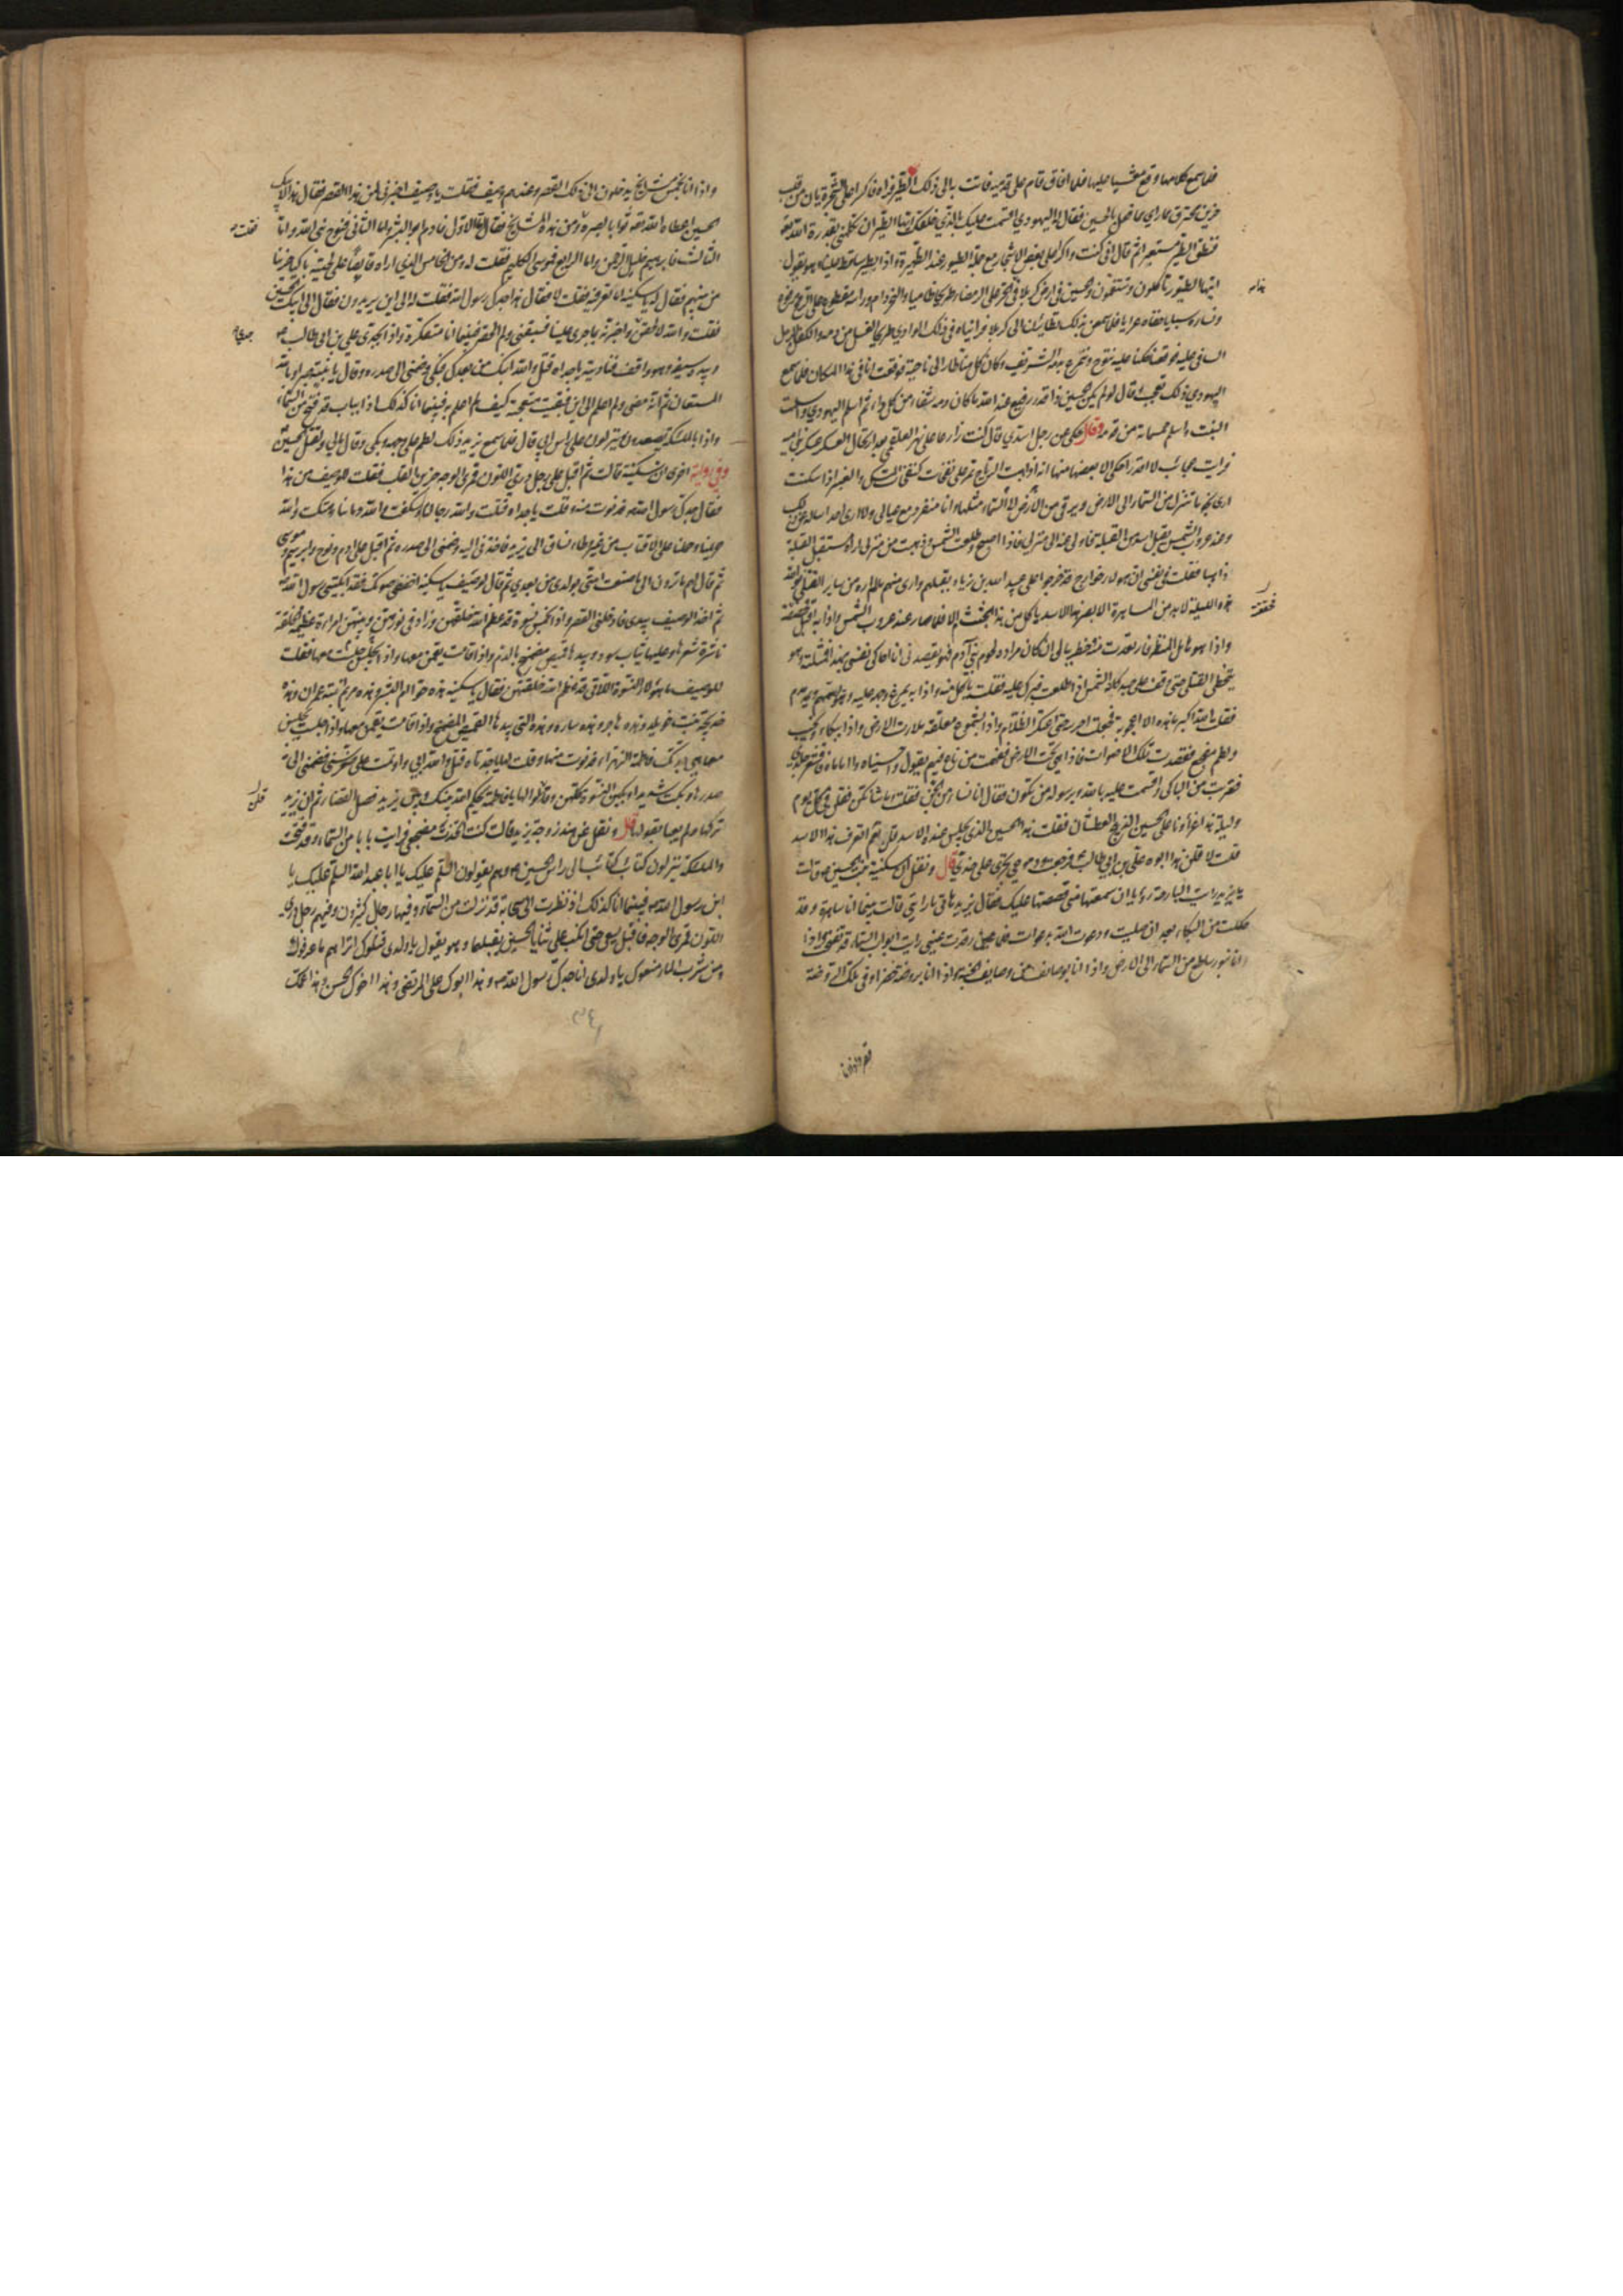 فلما سمع كلامها وقع مغشيا عليها فلما افاق قام على قدميه فاتت بالى ذلك الطير فراه ذاكرا على الشجرة يان من قلب
حزين محترق مما راى ما فعل بالحسين فقال له اليهودي اقسمت عليك بالذي خلقك ايها الطير ان تكلمني بقدرة الله تعالى
فنطق الطير مستعبرا ثم قال اني كنت واكرا على بعض الاشجار مع جملة الطيور عند الظهيرة واذا بطير ساقط علينا وهو يقول
ايها الطيور تاكلون وتتنعمون والحسين في ارض كربلا في هذا الحر على الرمضاء طريحا ظاميا والنحر دام وراسه مقطوع على الرمح مرفوع
ونساؤه سبايا حفاة عرايا فلما سمعن بذلك تطايرن الى كربلا فرايناه في ذلك الوادي طريحا الغسل من دمه والكفن الرمل
السافي عليه فوقعنا كلنا عليه ننوح ونتمرغ بدمه الشريف وكان كل منا طار الى ناحية فوقعت انا في هذا المكان فلما سمع
اليهودي ذلك تعجب وقال لو لم يكن الحسين ذا قدر رفيع عند الله ما كان دمه شفاء من كل داء ثم اسلم اليهودي واسلمت
البنت واسلم خمسمائة من قومه وقال حكى عن رجل اسدي قال كنت زارعا على نهر العلقمي بعد ارتحال العسكر عسكر بني امية
فرايت عجائب لا اقدر احكي الا بعضها منها انه اذا هبت الرياح تمر علي نفحات كنفحات المسك والعنبر اذا سكنت
ارى نجوما تنزل من السماء الى الارض ويرقى من الارض الى السماء مثلها وانا منفرد مع عيالي ولا ارى احدا اساله عن ذلك
وعند غروب الشمس يقبل اسد من القبلة فاولي عنه الى منزلي فاذا اصبح وطلعت الشمس وذهبت من منزلي اراه مستقبل القبلة
ذاهبا فقلت في نفسي ان هؤلاء خوارج قد خرجوا على عبيد الله بن زياد فامر بقتلهم وارى منهم ما لم اره من سائر القتلى فوالله
هذه الليلة لا بد من المساهرة لابصر هذا الاسد ياكل من هذه الجثث ام لا فلما صار عند غروب الشمس واذا به اقبل فحققته
واذا هو هائل المنظر فارتعدت منه وخطر ببالي ان كان مراده لحوم بني آدم فهو يقصدني وانا احاكي نفسي بهذا فمثلته وهو
يتخطى القتلى حتى وقف على جسد كانه الشمس اذا طلعت فبرك عليه فقلت ياكل منه واذا به يمرغ وجهه عليه وهو يهمهم ويدمدم
فقلت الله اكبر ما هذه الا اعجوبة فجعلت احرسه حتى اعتكر الظلام واذا بشموع معلقة ملات الارض واذا ببكاء ونحيب
ولطم مفجع فقصدت تلك الاصوات فاذا هي تحت الارض ففهمت من ناع فيهم يقول واحسيناه وااماماه فاقشعر جلدي
فقربت من الباكي واقسمت عليه بالله وبرسوله من تكون فقال انا نساء من الجن فقلت وما شانكن فقلن في كل يوم
وليلة هذا عزاؤنا على الحسين الذبيح العطشان فقلت هذا الحسين الذي يجلس عنده الاسد قلن نعم اتعرف هذا الاسد
قلت لا قلن هذا ابوه علي بن ابي طالب فرجعت ودموعي تجري على خدي قال ونقل ان سكينة بنت الحسين قالت
يا يزيد رايت البارحة رؤيا ان سمعتها مني قصصتها عليك فقال يزيد هاتي ما رايتي قالت بينما انا ساهرة وقد
كللت من البكاء بعد ان صليت ودعوت الله بدعوات فلما رقدت عيني رايت ابواب السماء قد تفتحت واذا
انا بنور ساطع من السماء الى الارض واذا انا بوصائف من وصايف الجنة واذا انا بروضة خضراء وفي تلك الروضة
واذا انا بخمس مشايخ يدخلون الى ذلك القصر وعندهم وصيف فقلت يا وصيف اخبرني لمن هذا القصر فقال هذا لابيك
الحسين اعطاه الله تعالى ثوابا لصبره فقلت ومن هذه المشايخ فقال اما الاول فادم ابو البشر واما الثاني فنوح نبي الله واما
الثالث فابراهيم خليل الرحمن واما الرابع فموسى الكليم فقلت له ومن الخامس الذي اراه قابضا على لحيته باكيا حزينا
من بينهم فقال لي يا سكينة اما تعرفيه فقلت لا فقال هذا جدك رسول الله فقلت له الى اين يريدون فقال الى ابيك الحسين
فقلت والله لالحقن جدي واخبرنه بما جرى علينا فسبقني ولم الحقه فبينما انا متفكرة واذا بجدي علي بن ابي طالب
وبيده سيفه وهو واقف فناديته يا جداه قتل والله ابنك من بعدك فبكى وضمني الى صدره وقال يا بنية صبرا وبالله
المستعان ثم انه مضى ولم اعلم الى اين فبقيت متعجبة كيف لم اعلم به فبينما انا كذلك اذا بباب قد فتح من السماء
واذا بالملائكة يصعدون وينزلون على راس ابي قال فلما سمع يزيد ذلك لطم على وجهه وبكى وقال ما لي ولقتل الحسين
وفي رواية اخرى ان سكينة قالت ثم اقبل علي رجل دري اللون قمري الوجه حزين القلب فقلت للوصيف من هذا
فقال جدك رسول الله فدنوت منه وقلت يا جداه قتلت والله رجالنا وسفكت والله دماؤنا وهتكت والله
حريمنا وحملنا على الاقتاب من غير وطاء نساق الى يزيد فاخذني اليه وضمني الى صدره ثم اقبل على ادم ونوح وابراهيم وموسى
ثم قال لهم ما ترون الى ما صنعت امتي بولدي من بعدي ثم قال الوصيف يا سكينة اخفضي صوتك فقد ابكيتي رسول الله
ثم اخذ الوصيف بيدي فادخلني القصر واذا بخمس نسوة قد عظم الله خلقتهن وزاد في نورهن وبينهن امراة عظيمة الخلقة
ناشرة شعرها وعليها ثياب سود وبيدها قميص مضمخ بالدم واذا قامت يقمن معها واذا جلست جلسن معها فقلت
للوصيف ما هؤلاء النسوة اللاتي قد عظم الله خلقتهن فقال يا سكينة هذه حوا ام البشر وهذه مريم بنت عمران وهذه
خديجة بنت خويلد وهذه هاجر وهذه سارة وهذه التي بيدها القميص المضمخ واذا قامت يقمن معها واذا جلست يجلسن
معها هي جدتك فاطمة الزهراء فدنوت منها وقلت لها يا جدتاه قتل والله ابي واوتمت على صغر سني فضمتني الى
صدرها وبكت شديدا وبكين النسوة كلهن وقلن لها يا فاطمة يحكم الله بينك وبين يزيد يوم فصل القضاء ثم ان يزيد
تركها ولم يعبا بقولها قال ونقل عن هند زوجة يزيد قالت كنت اخذت مضجعي فرايت بابا من السماء وقد فتحت
والملائكة ينزلون كتائب كتائب الى راس الحسين وهم يقولون السلام عليك يا ابا عبد الله السلام عليك يا
ابن رسول الله فبينما انا كذلك اذ نظرت الى سحابة قد نزلت من السماء وفيها رجال كثيرون وفيهم رجل دري
اللون قمري الوجه فاقبل يسعى حتى انكب على ثنايا الحسين يقبلها وهو يقول يا ولدي قتلوك اتراهم ما عرفوك
ومن شرب الماء منعوك يا ولدي انا جدك رسول الله وهذا ابوك علي المرتضى وهذا اخوك الحسن وهذا عمك